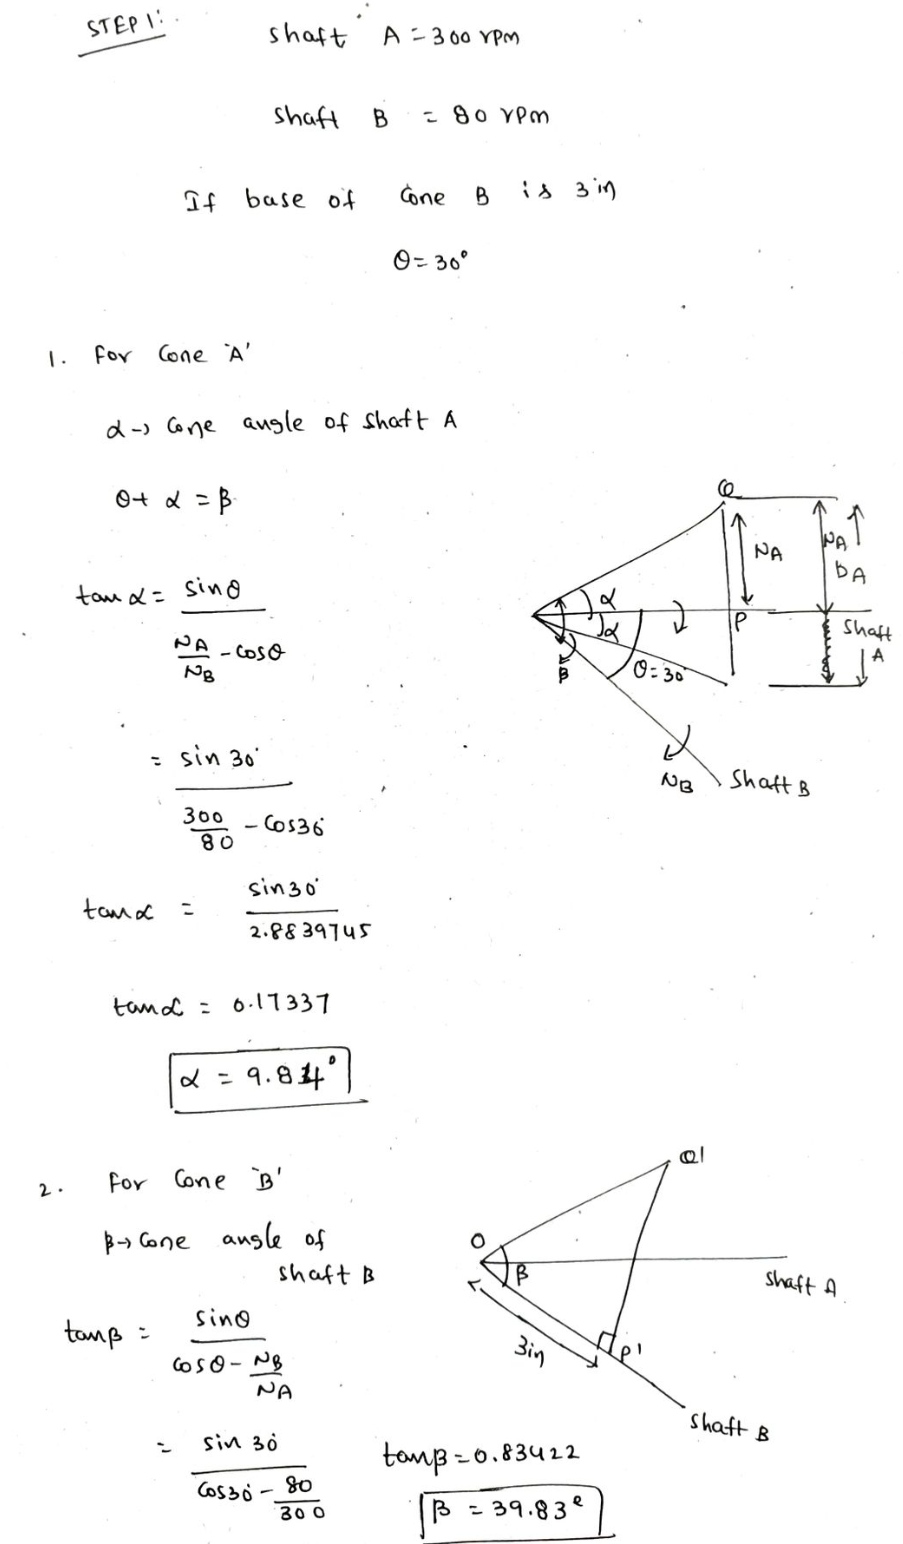 STEP 1:
Shaft A = 300 rpm
Shaft B = 80 rpm
If base of Cone B is 3 in
θ = 30°
1. For Cone 'A'
α → Cone angle of Shaft A
θ + α = β
tan α = sin θ
NA/NB - cos θ
= sin 30°
300/80 - Cos 30°
tan α = sin 30°
2.8839745
tan α = 0.17337
α = 9.84°
Q
NA
NA
DA
α
α
P
Shaft A
β
θ = 30
NB
Shaft B
2. For Cone 'B'
β → Cone angle of
Shaft B
tan β = sin θ
cos θ - NB/NA
= sin 30°
cos 30° - 80/300
tan β = 0.83422
β = 39.83°
Q'
O
β
Shaft A
3in
P'
Shaft B